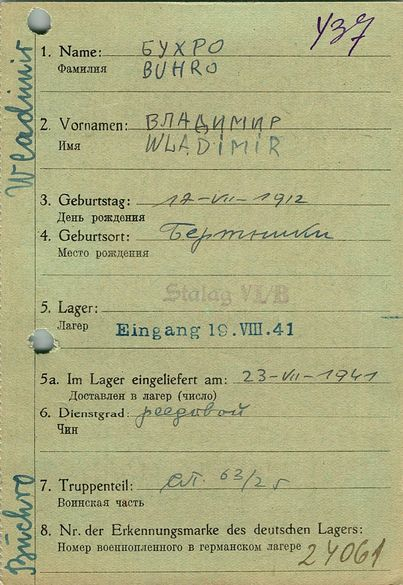 437
1. Name: БУХРО
Фамилия BUHRO
2. Vornamen: ВЛАДИМИР
Имя WLADIMIR
3. Geburtstag: 17-VII-1912
День рождения
4. Geburtsort:
Место рождения
Stalag VI/B
5. Lager:
Лагерь Eingang 19.VIII.41
5a. Im Lager eingeliefert am: 23-VII-1941
Доставлен в лагер (число)
6. Dienstgrad:
Чин
7. Truppenteil: 63/2
Воинская часть
8. Nr. der Erkennungsmarke des deutschen Lagers:
Номер военнопленного в германском лагере 24061
Wladimir
Büchro